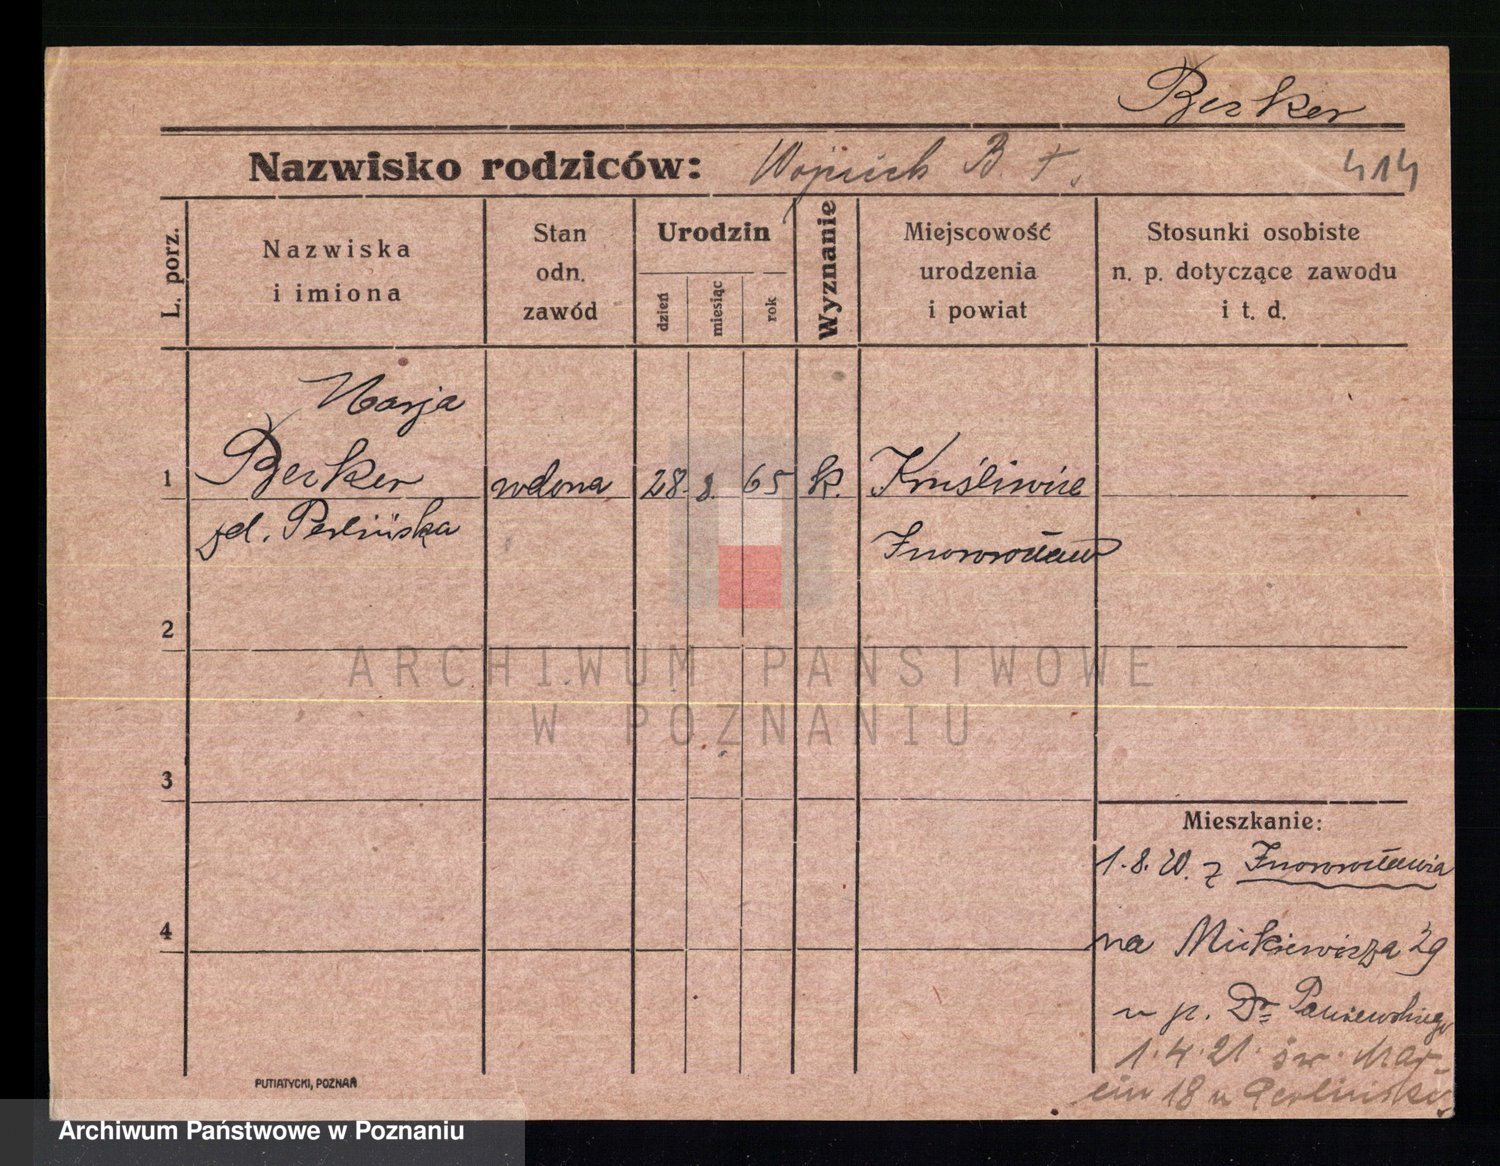 Berker
Nazwisko rodziców: Wojciech B. †.
414
L. porz.
Nazwiska
i imiona
Stan
odn.
zawód
Urodzin
dzień
miesiąc
rok
Wyznanie
Miejscowość
urodzenia
i powiat
Stosunki osobiste
n. p. dotyczące zawodu
i t. d.
Marja
1 Berker wdowa 28. 8. 65 k. Kruśliwice
zd. Perlińska Inowrocław
2
ARCHIWUM PAŃSTWOWE
W POZNANIU
3
Mieszkanie:
1.8.20. z Inowrocławia
4
na Mickiewicza 29
u p. Dr
1.4.21. św. Mar-
cin 18 u Perliński
PUTIATYCKI, POZNAŃ
Archiwum Państwowe w Poznaniu